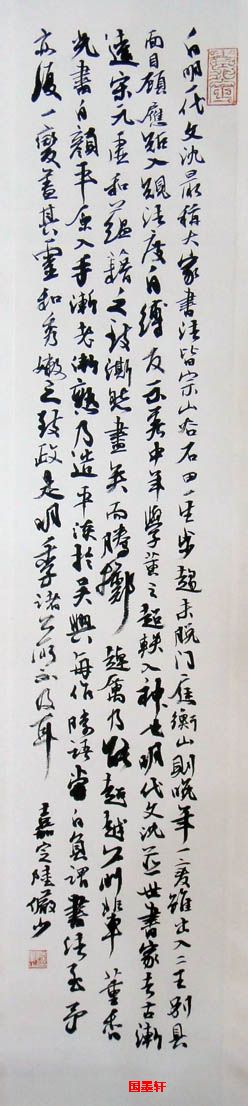 有明一代文沈最称大家书法皆宗山谷石田一生步趋未脱门厓衡山则晚年一变虽出入二王别具
面目顾应贴入规法度自缚友不若中年学黄之超轶入神也明代文沈并世书家去古渐
远宋元虚和蕴籍之致渐就尽矣而腾掷趋厉乃能超越
光书自颜平原入手渐老渐熟乃造平淡于吴兴每作矜语尝自负谓书法至予
亦复一变盖其灵和秀嫩之致故是明季诸公所不及耳
嘉定陆俨少
国墨轩